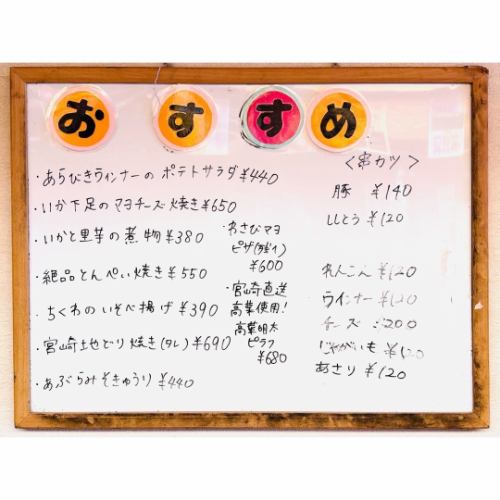 おすすめ
・あらびきウインナーの ポテトサラダ ¥440
・いか下足のマヨチーズ焼き ¥650
・いかと里芋の煮物 ¥380
・絶品とんぺい焼き ¥550
・ちくわのいそべ揚げ ¥390
・宮崎土地どり焼き(タレ) ¥690
・あぶらみそきゅうり ¥440
・わさびマヨ
ピザ
¥600
・宮崎直送
高菜使用!
高菜明太
ピラフ
¥680
<串カツ>
豚 ¥140
ししとう ¥120
れんこん ¥120
ウインナー ¥120
チーズ 200
じゃがいも ¥120
あさり ¥120